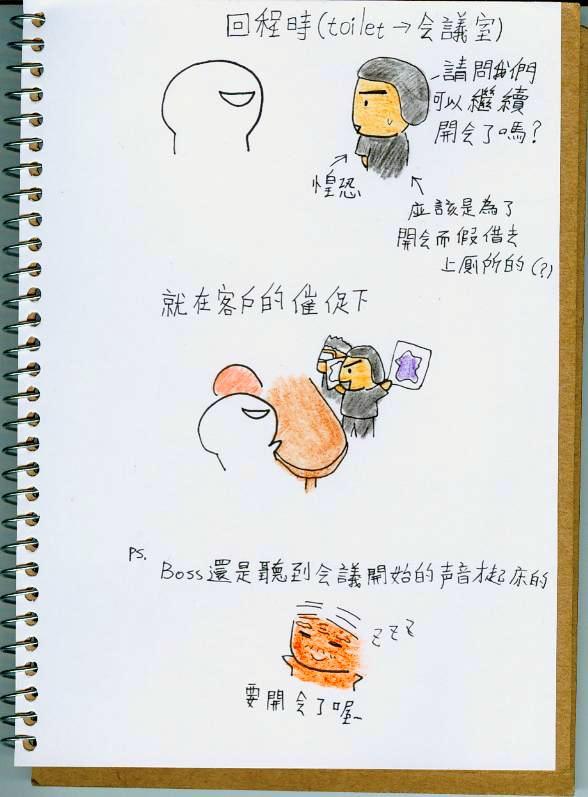 回程時(toilet→会議室)
請問我們
可以繼續
開会了嗎?
惶恐
應該是為了
開会而假借去
上廁所的(?)
就在客戶的催促下
PS.
Boss還是聽到会議開始的声音才起床的
zzz
要開会了喔~